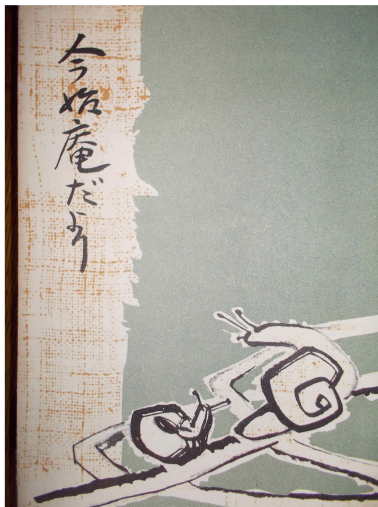 今始庵だより